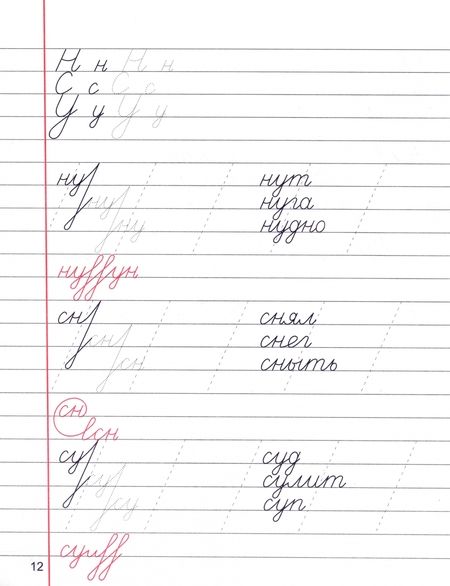 Н н Н н
С с С с
У у У у
ну нут
ну нуга
ну нудно
сн снял
сн снег
сн сныть
сн
сн
су суд
су сулит
су суп
12